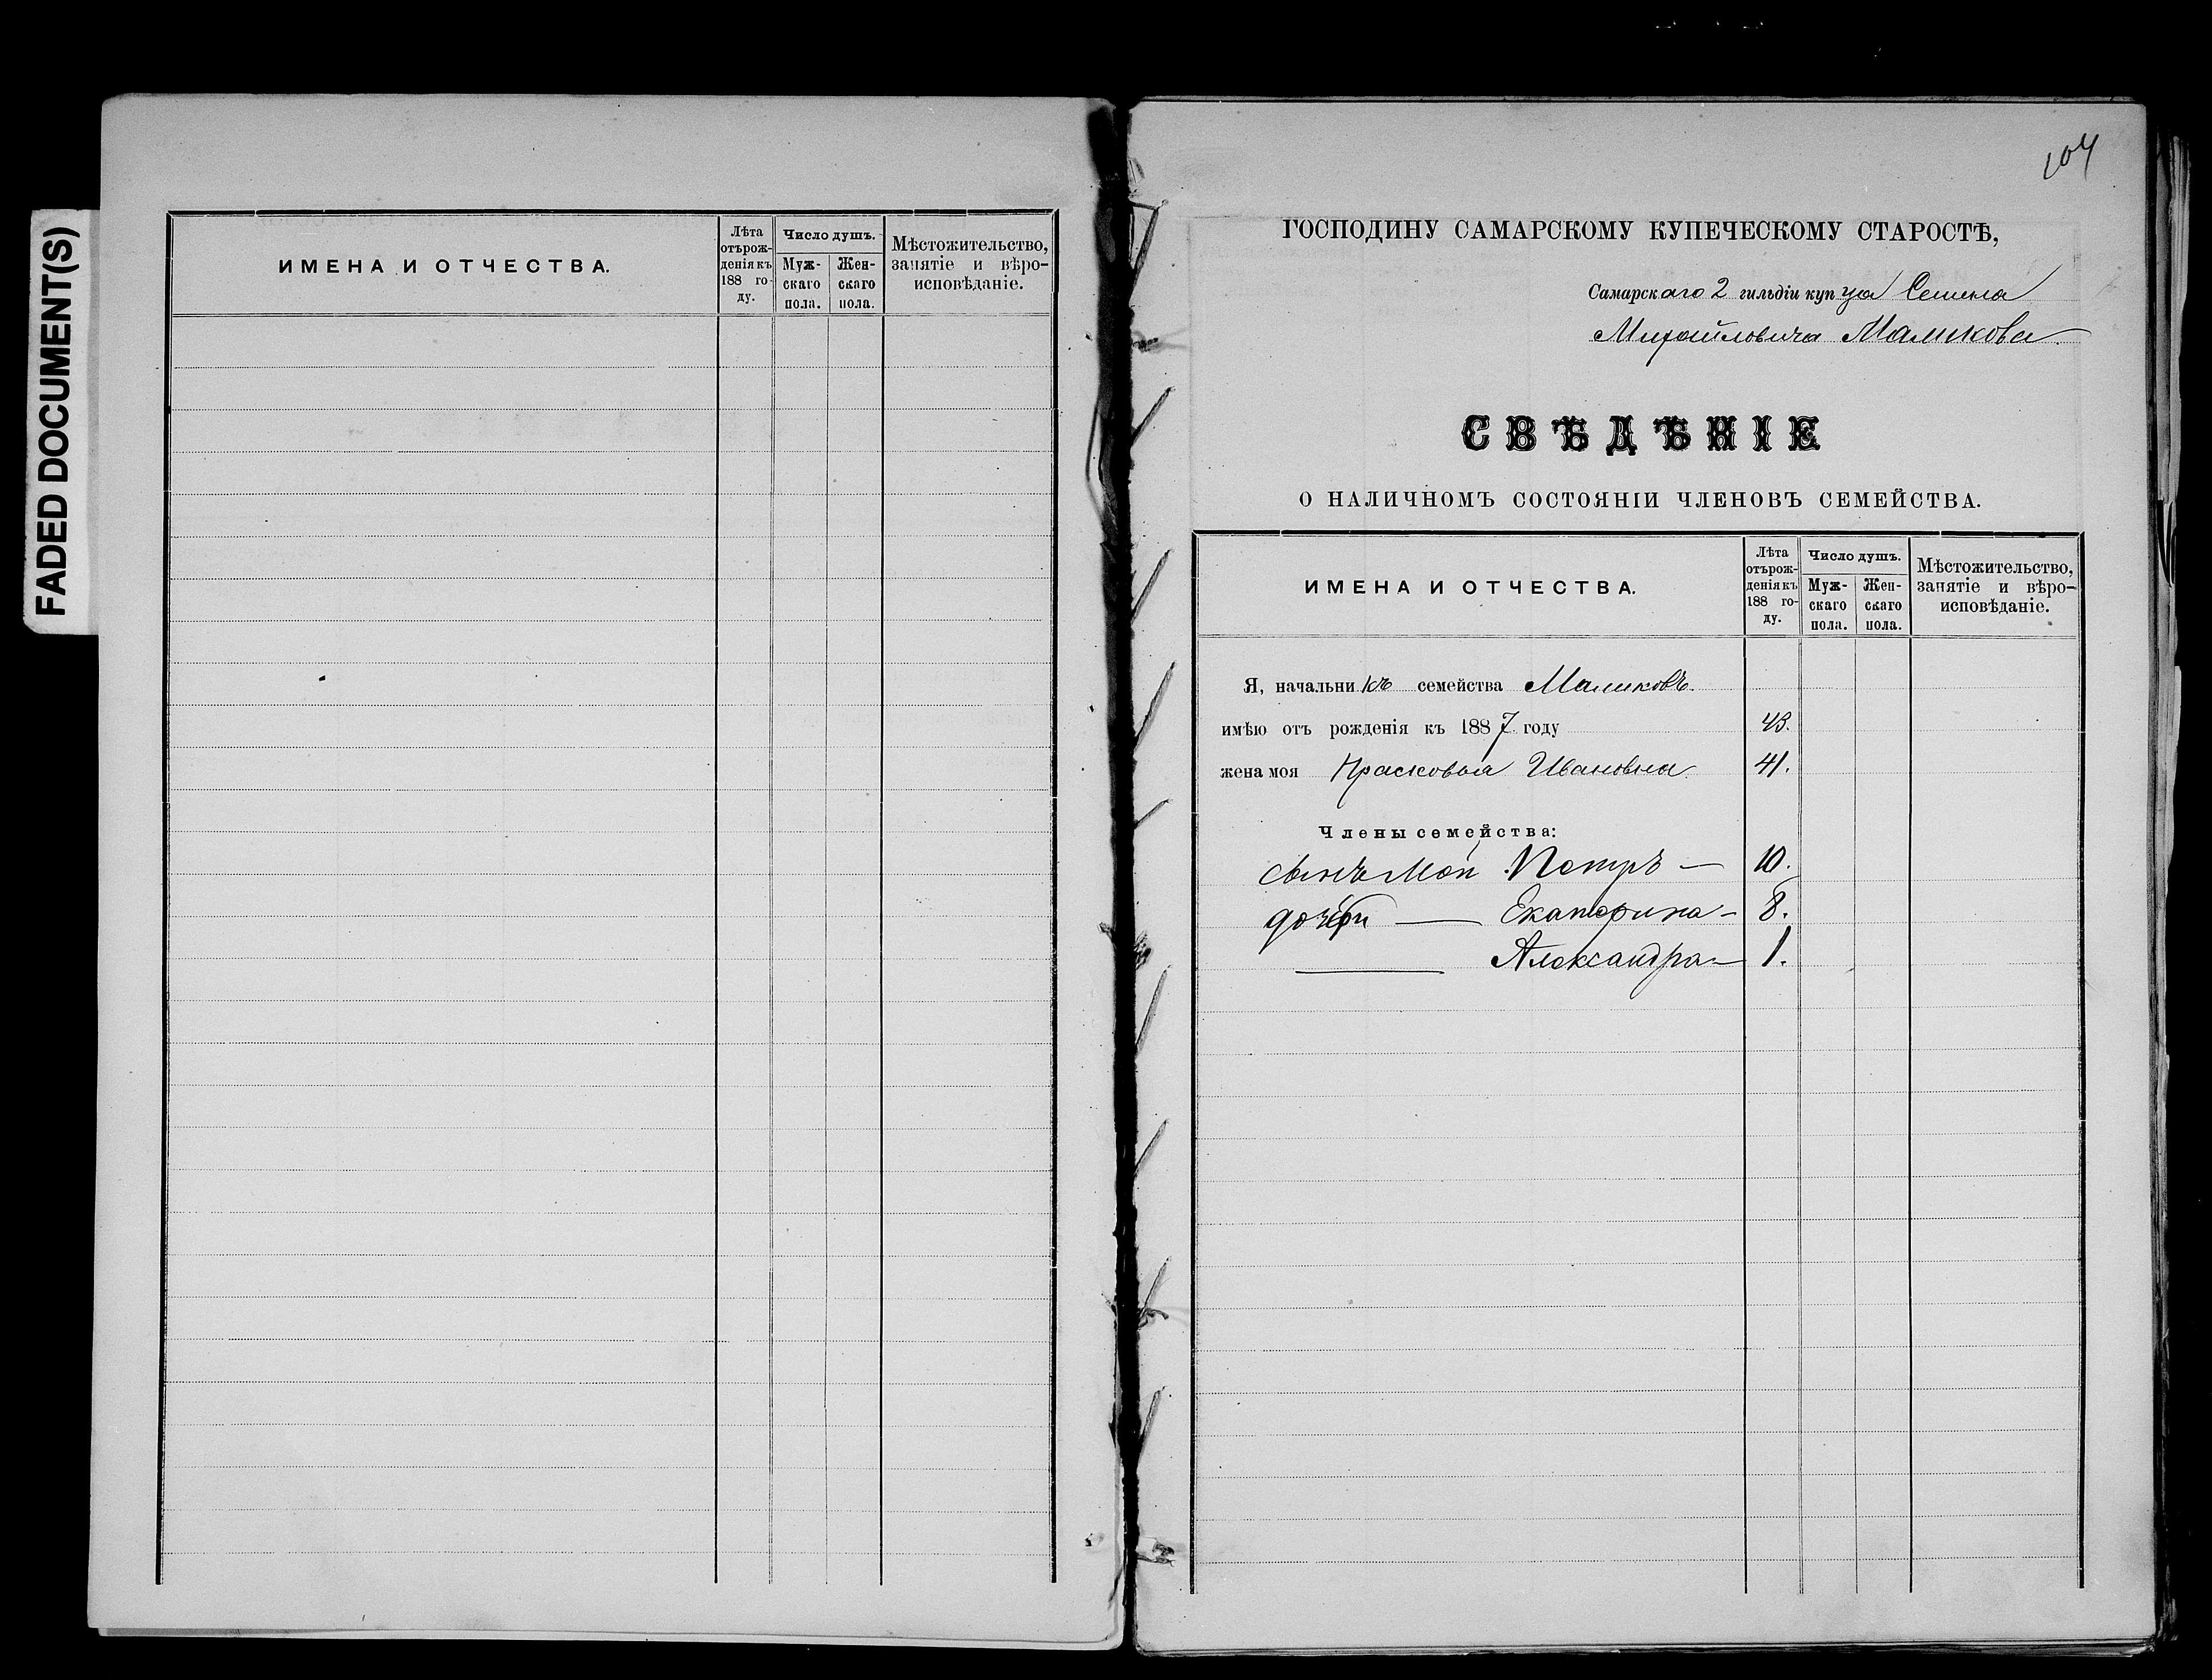 FADED DOCUMENT(S)
ИМЕНА И ОТЧЕСТВА.
Лѣта отърожденія къ 188 году.
Число душъ.
Мужскаго пола.
Женскаго пола.
Мѣстожительство, занятіе и вѣроисповѣданіе.
104
ГОСПОДИНУ САМАРСКОМУ КУПЕЧЕСКОМУ СТАРОСТѢ,
Самарскаго 2 гильдіи купца Семена
Михайловича Маликова.
СВѢДѢНІЕ
О НАЛИЧНОМЪ СОСТОЯНІИ ЧЛЕНОВЪ СЕМЕЙСТВА.
ИМЕНА И ОТЧЕСТВА.
Лѣта отърожденія къ 188 году.
Число душъ.
Мужскаго пола.
Женскаго пола.
Мѣстожительство, занятіе и вѣроисповѣданіе.
Я, начальникъ семейства Маликовъ.
имѣю отъ рожденія къ 1887 году 43.
жена моя Прасковья Ивановна 41.
Члены семейства:
сынъ мой Петръ — 10.
дочери — Екатерина — 8.
— Александра — 1.